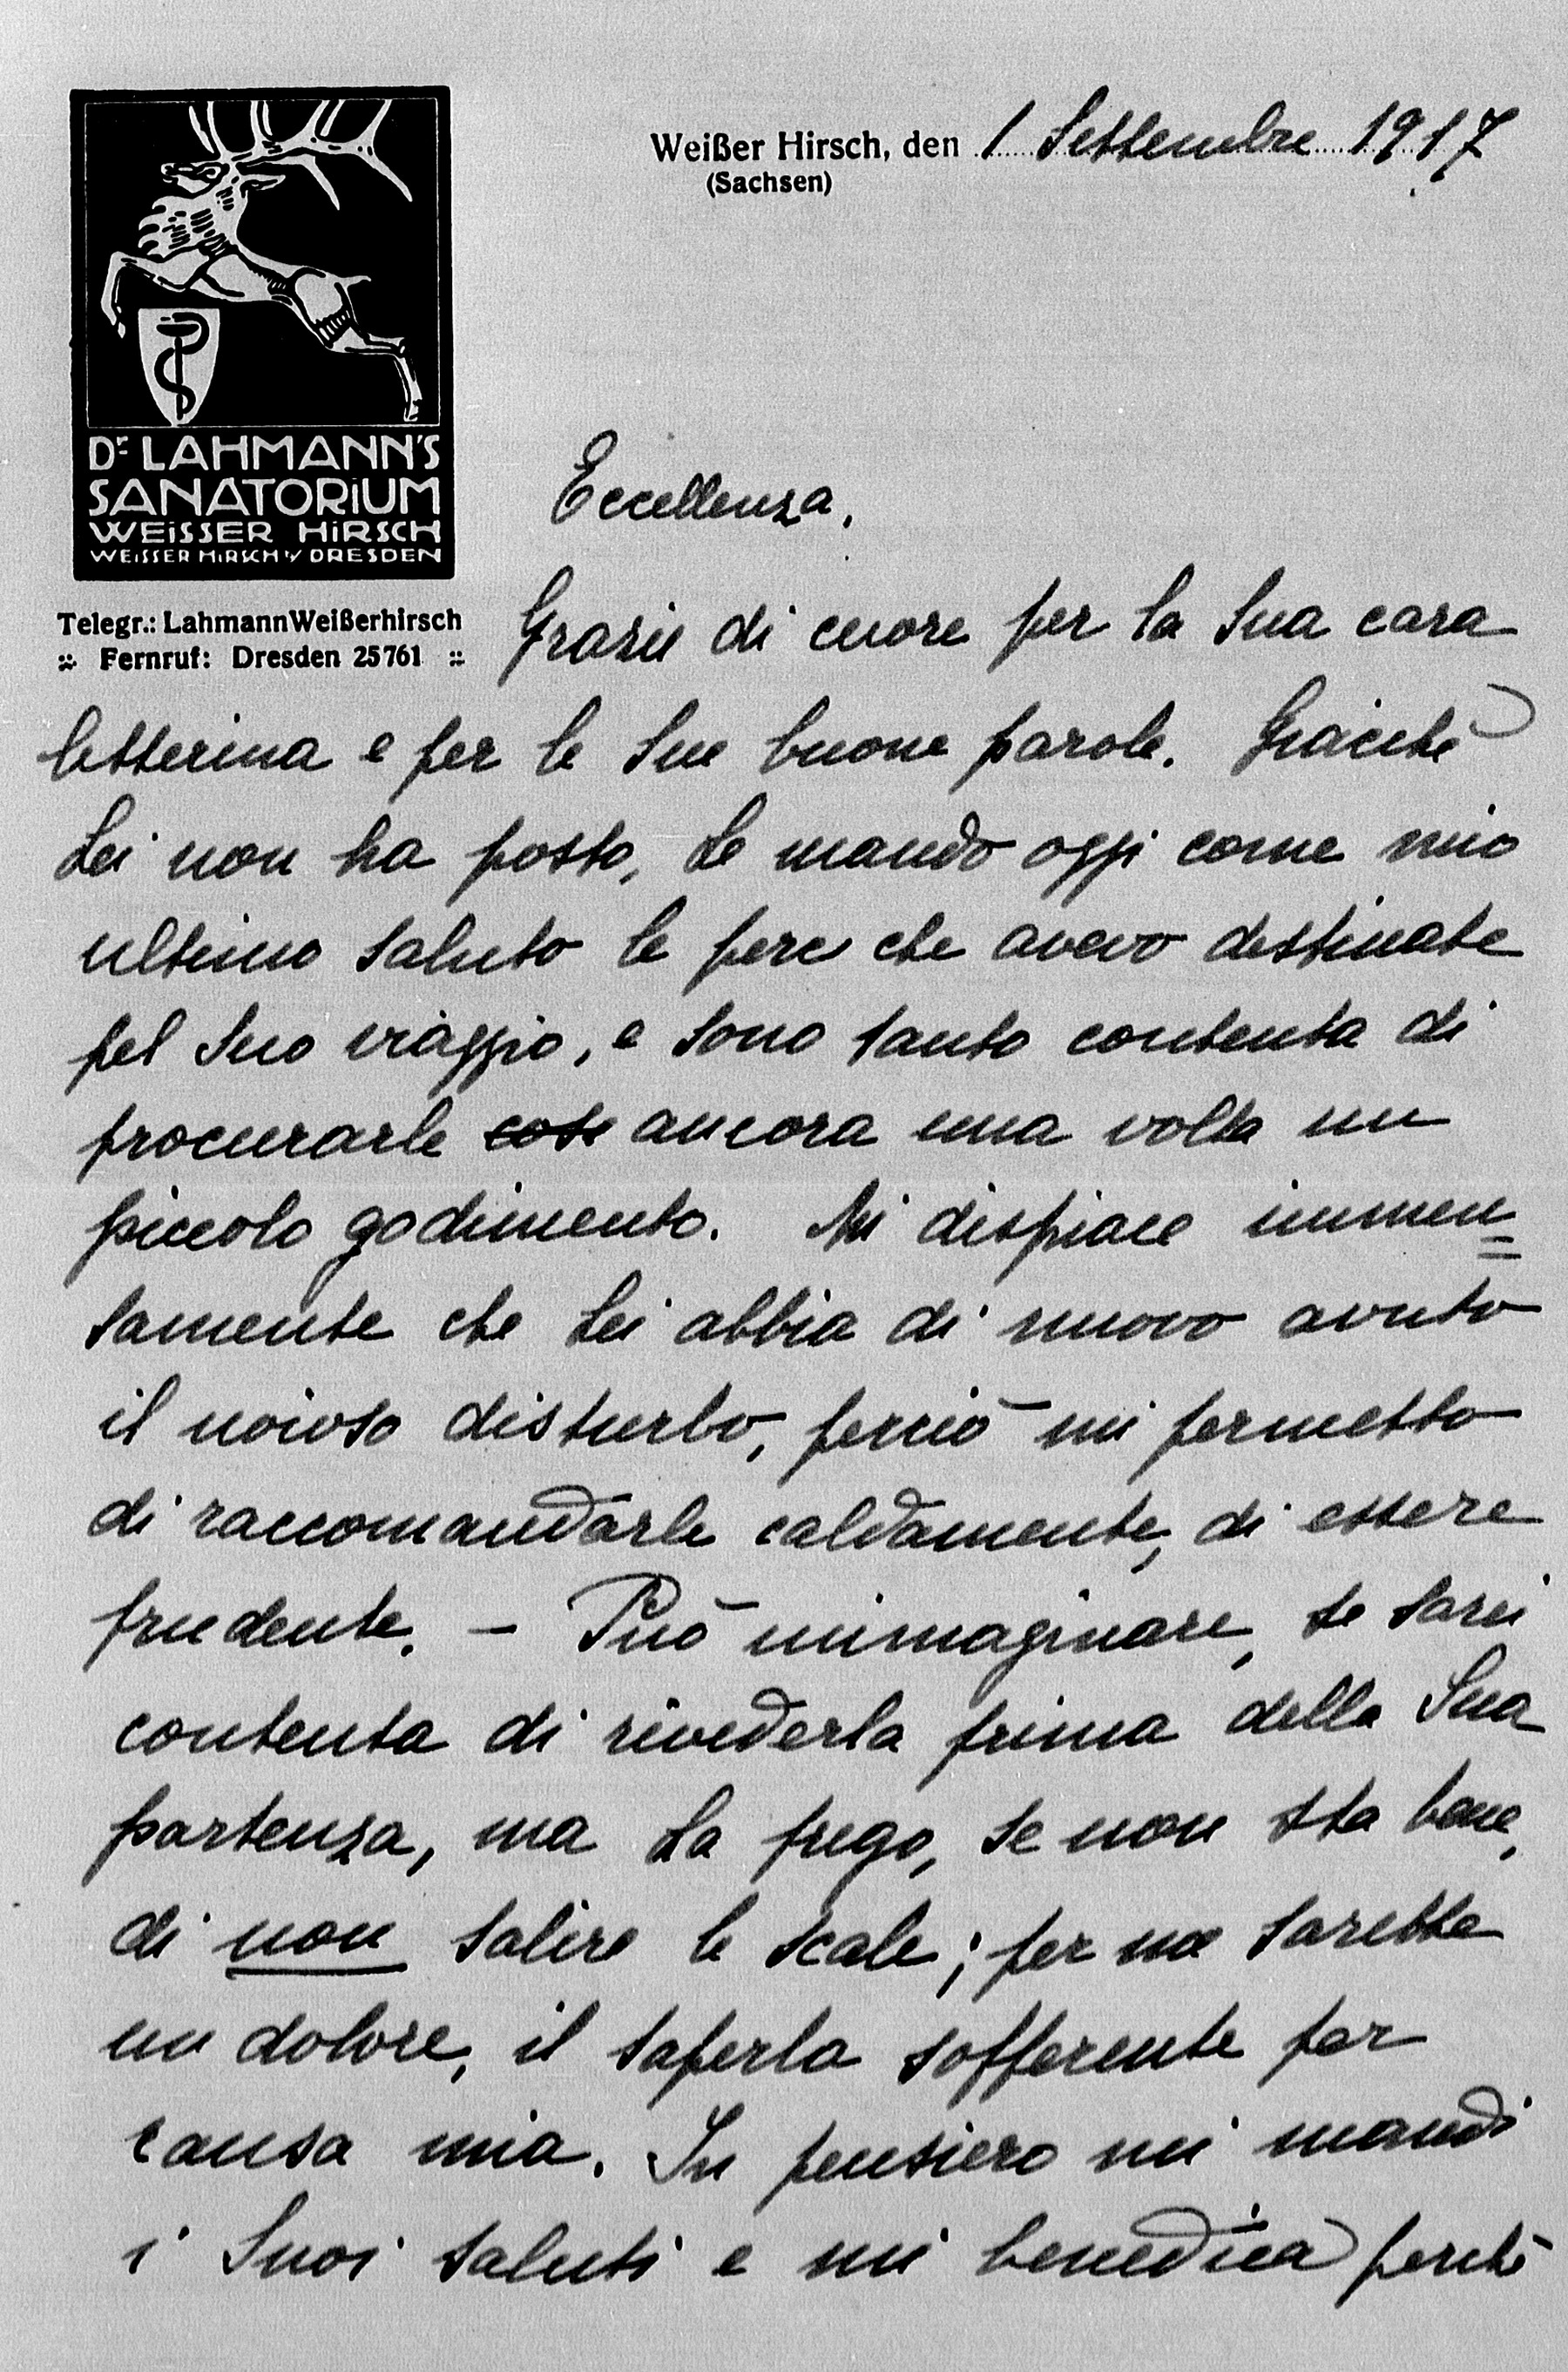 Weißer Hirsch, den 1 Settembre 1917
(Sachsen)
Dr. LAHMANN'S
SANATORIUM
WEISSER HIRSCH
WEISSER HIRSCH b/ DRESDEN
Telegr.: LahmannWeißerhirsch
:: Fernruf: Dresden 25761 ::
Eccellenza,
Grazie di cuore per la Sua cara
letterina e per le Sue buone parole. Giacchè
Lei non ha posto, Le mando oggi come mio
ultimo saluto le pere che avevo destinate
pel Suo viaggio, e sono tanto contenta di
procurarle così ancora una volta un
piccolo godimento. Mi dispiace immen=
samente che Lei abbia di nuovo avuto
il noioso disturbo, perciò mi permetto
di raccomandarle caldamente, di essere
prudente. – Può immaginare, se sarei
contenta di rivederla prima della Sua
partenza, ma La prego, se non sta bene,
di non salire le scale; per me sarebbe
un dolore, il saperla sofferente per
causa mia. In pensiero mi mandi
i Suoi saluti e mi benedica perchè